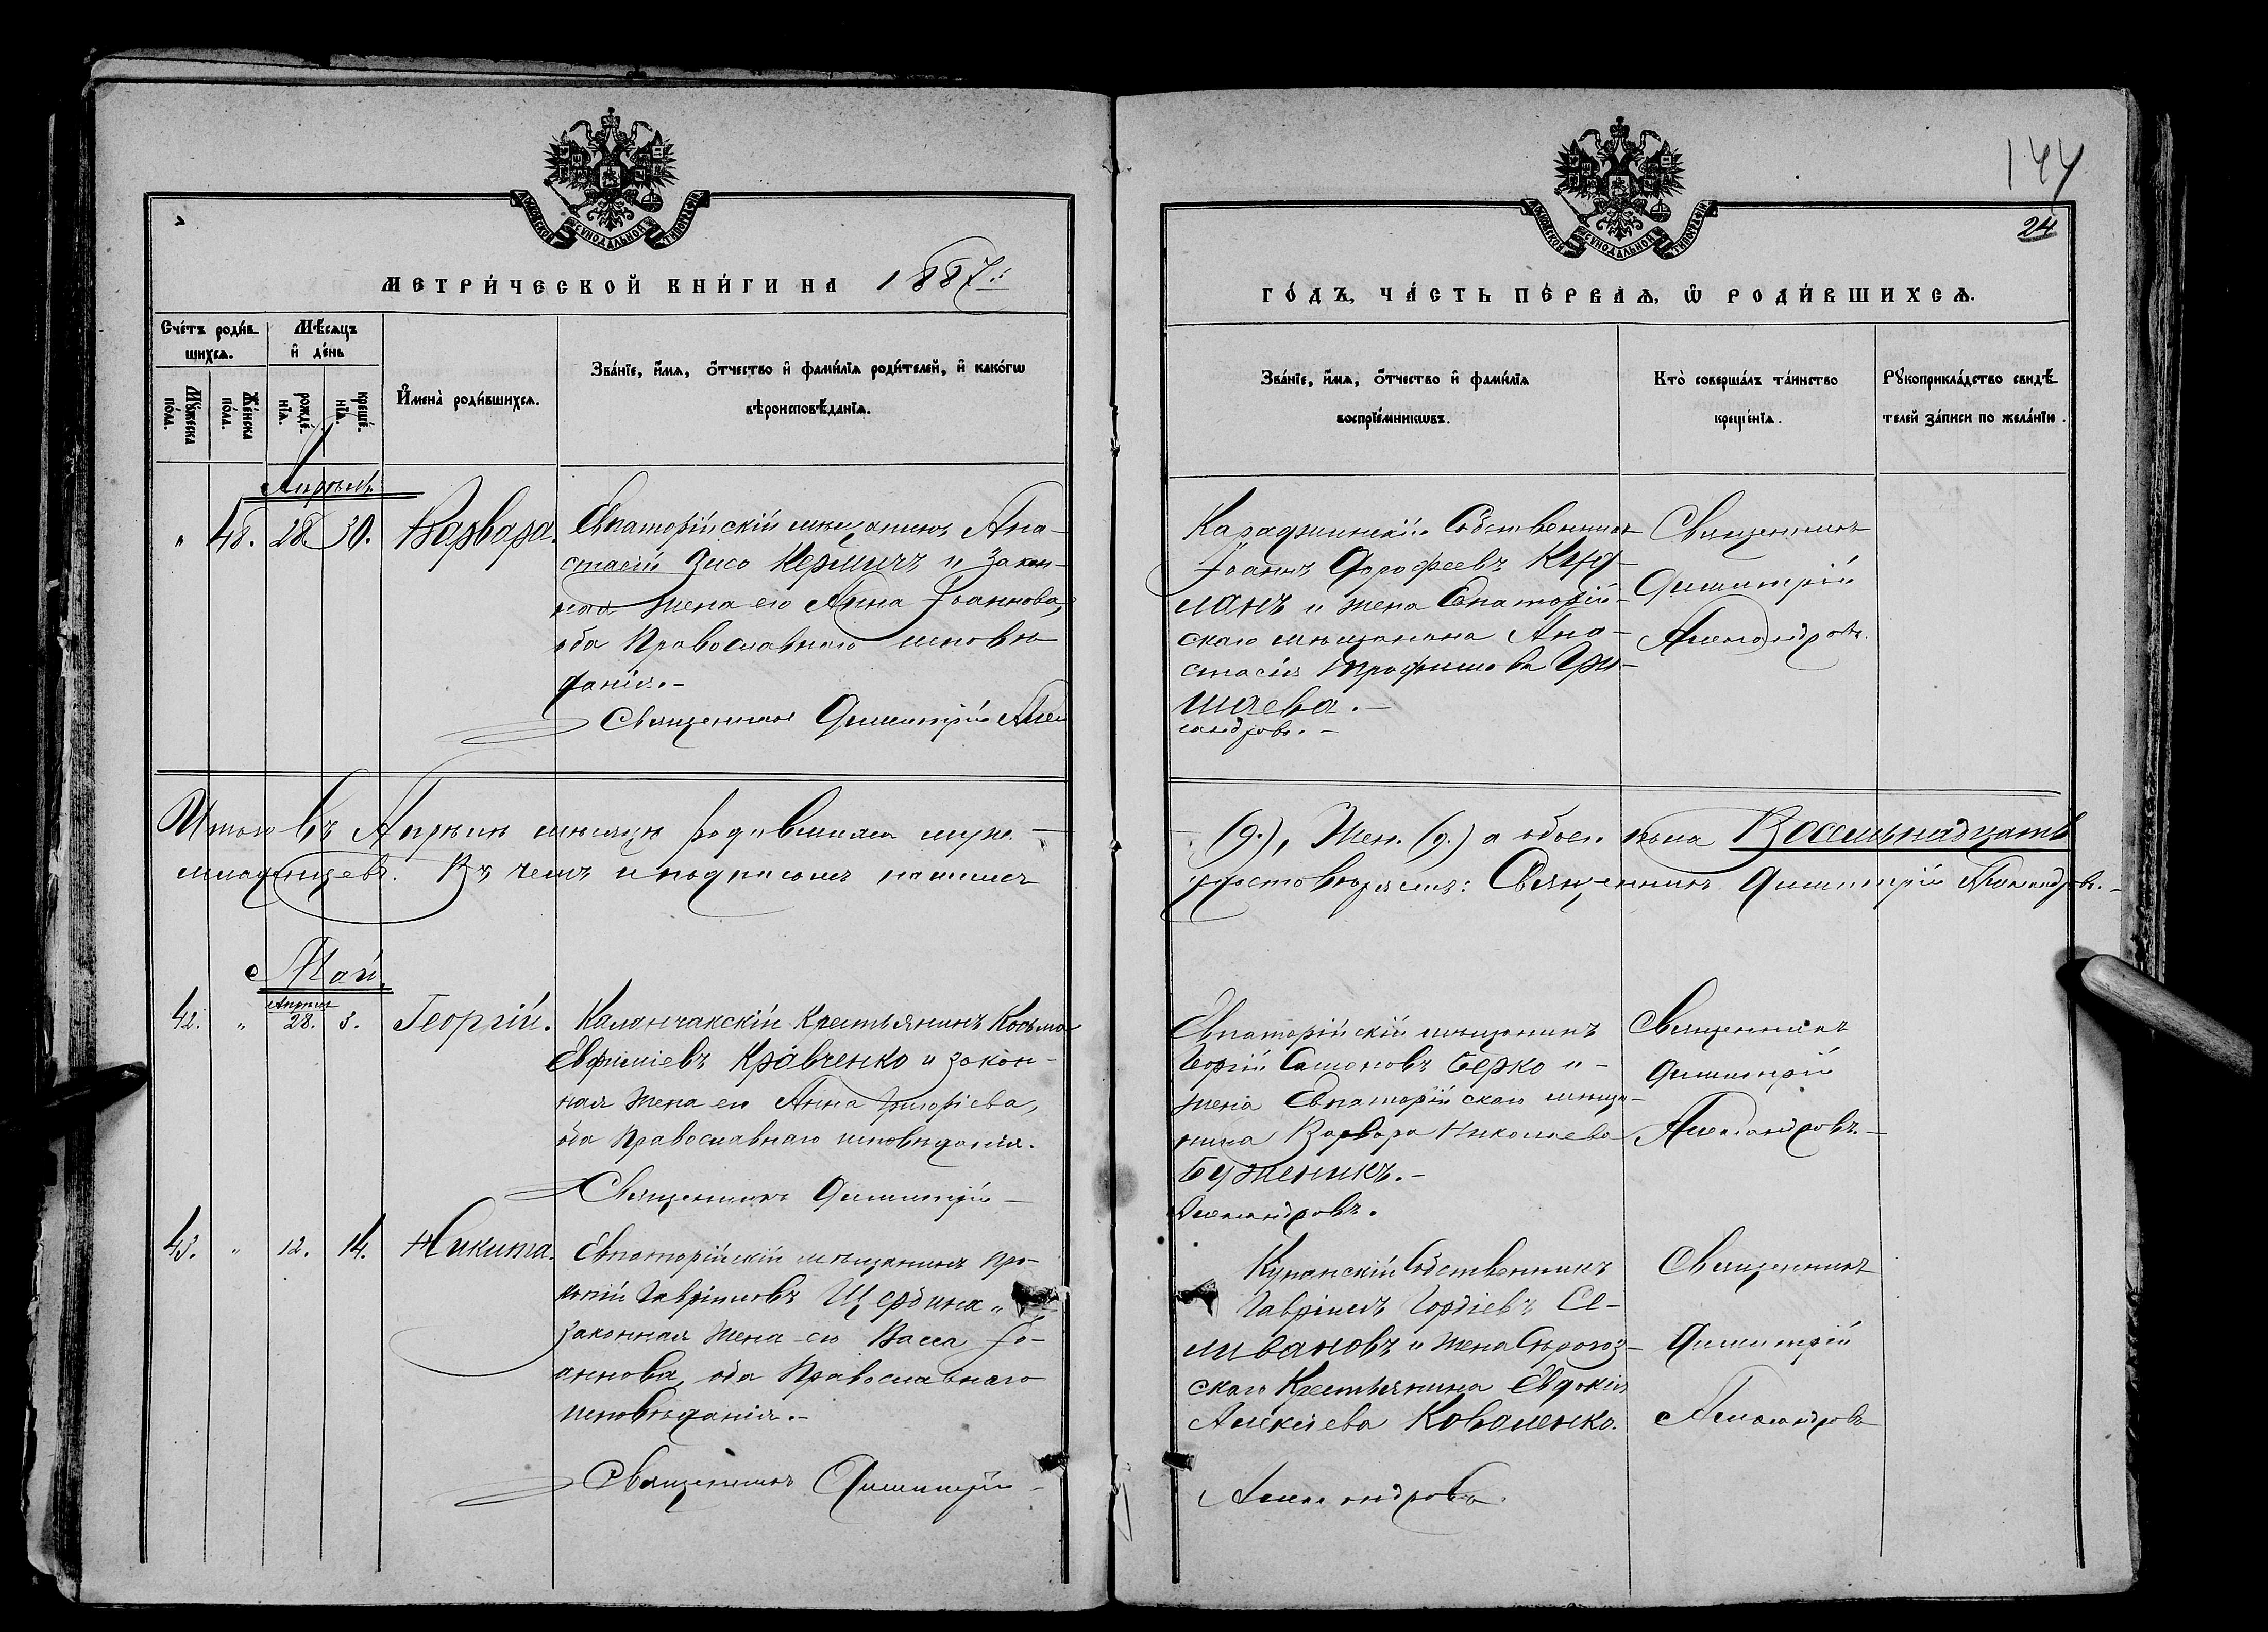 144
24
МОСКОВСКОЙ СѴНОДАЛЬНОЙ ТИПОГРАФІИ
МОСКОВСКОЙ СѴНОДАЛЬНОЙ ТИПОГРАФІИ
МЕТРИ́ЧЕСКОЙ КНИ́ГИ НА 1887:
ГО́ДЪ, ЧА́СТЬ ПЕ́РВАѦ, Ѽ РОДИ́ВШИХСѦ.
Сче́тъ роди́в-
шихсѧ.
Мꙋ́жеска
по́ла.
Же́нска
по́ла.
Мѣ́сѧцъ
и҆ де́нь
рожде́-
нїѧ.
креще́-
нїѧ.
И҆мена̀ роди́вшихсѧ.
Зва́нїе, и҆́мѧ, ѻ҆́тчество и҆ фами́лїѧ роди́телей, и҆ како́гѡ
вѣроисповѣ́данїѧ.
Зва́нїе, и҆́мѧ, ѻ҆́тчество и҆ фами́лїѧ
воспрїе́мникѡвъ.
Кто̀ соверша́лъ та́инство
креще́нїѧ.
Рꙋкоприкла́дство свидѣ́-
телей за́писи по жела́нїю.
Апрѣль
" 48. 28 30. Варвара.
Евпаторійскій мѣщанинъ Ана-
стасій Зисо Кермичъ и закон-
ная жена его Анна Іоаннова,
оба Православнаго исповѣ
данія.-
Священникъ Димитрій Алек
Караджинскій Собственникъ
Іоаннъ Дорофеевъ Кур-
ланъ и жена Евпаторій-
скаго мѣщанина Ана-
стасія Трофимова Гри-
шаева.-
сандровъ.-
Священникъ
Димитрій
Александровъ.
Итого въ Апрѣлѣ мѣсяцѣ родившихся муж. -
- (9.), Жен. (9.) а обоего пола Восемьнадцать
младенцевъ. Въ чемъ и подписомъ нашимъ
удостовѣряемъ: Священникъ Димитрій Александровъ.-
Май.
Апрѣля
42. " 28. 3. Георгій.
Каланчакскій Крестьянинъ Косьма
Евфиміевъ Кравченко и закон-
ная жена его Анна Григоріева,
оба Православнаго исповѣданія.
Священникъ Димитрій -
Евпаторійскій мѣщанинъ
Георгій Симоновъ Берко и -
жена Евпаторійскаго мѣща-
нина Варвара Николаева
Буженикъ.-
Александровъ.
Священникъ
Димитрій
Александровъ.-
43. " 12. 14. Никита.
Евпаторійскій мѣщанинъ Про-
копій Гавріиловъ Щербина и
законная жена его Васса Іо-
аннова, оба Православнаго
исповѣданія.-
Священникъ Димитрій -
Кунанскій Собственникъ
Гавріилъ Гордіевъ Се-
ливановъ и жена Сѣрогоз-
скаго Крестьянина Евдокія
Алексіева Коваленко.
Александровъ.
Священникъ
Димитрій
Александровъ